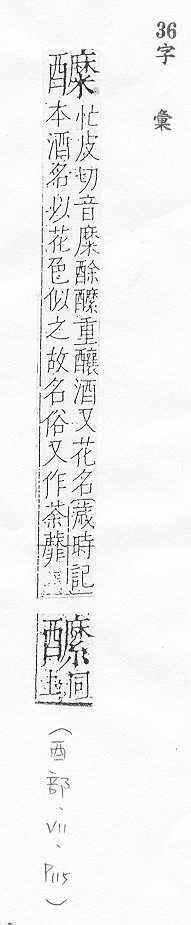 36
字彙
醾
忙皮切音糜酴醿重釀酒又花名歲時記
本酒名以花色似之故名俗又作荼蘼
醿
同上
(酉部、VII、P115)